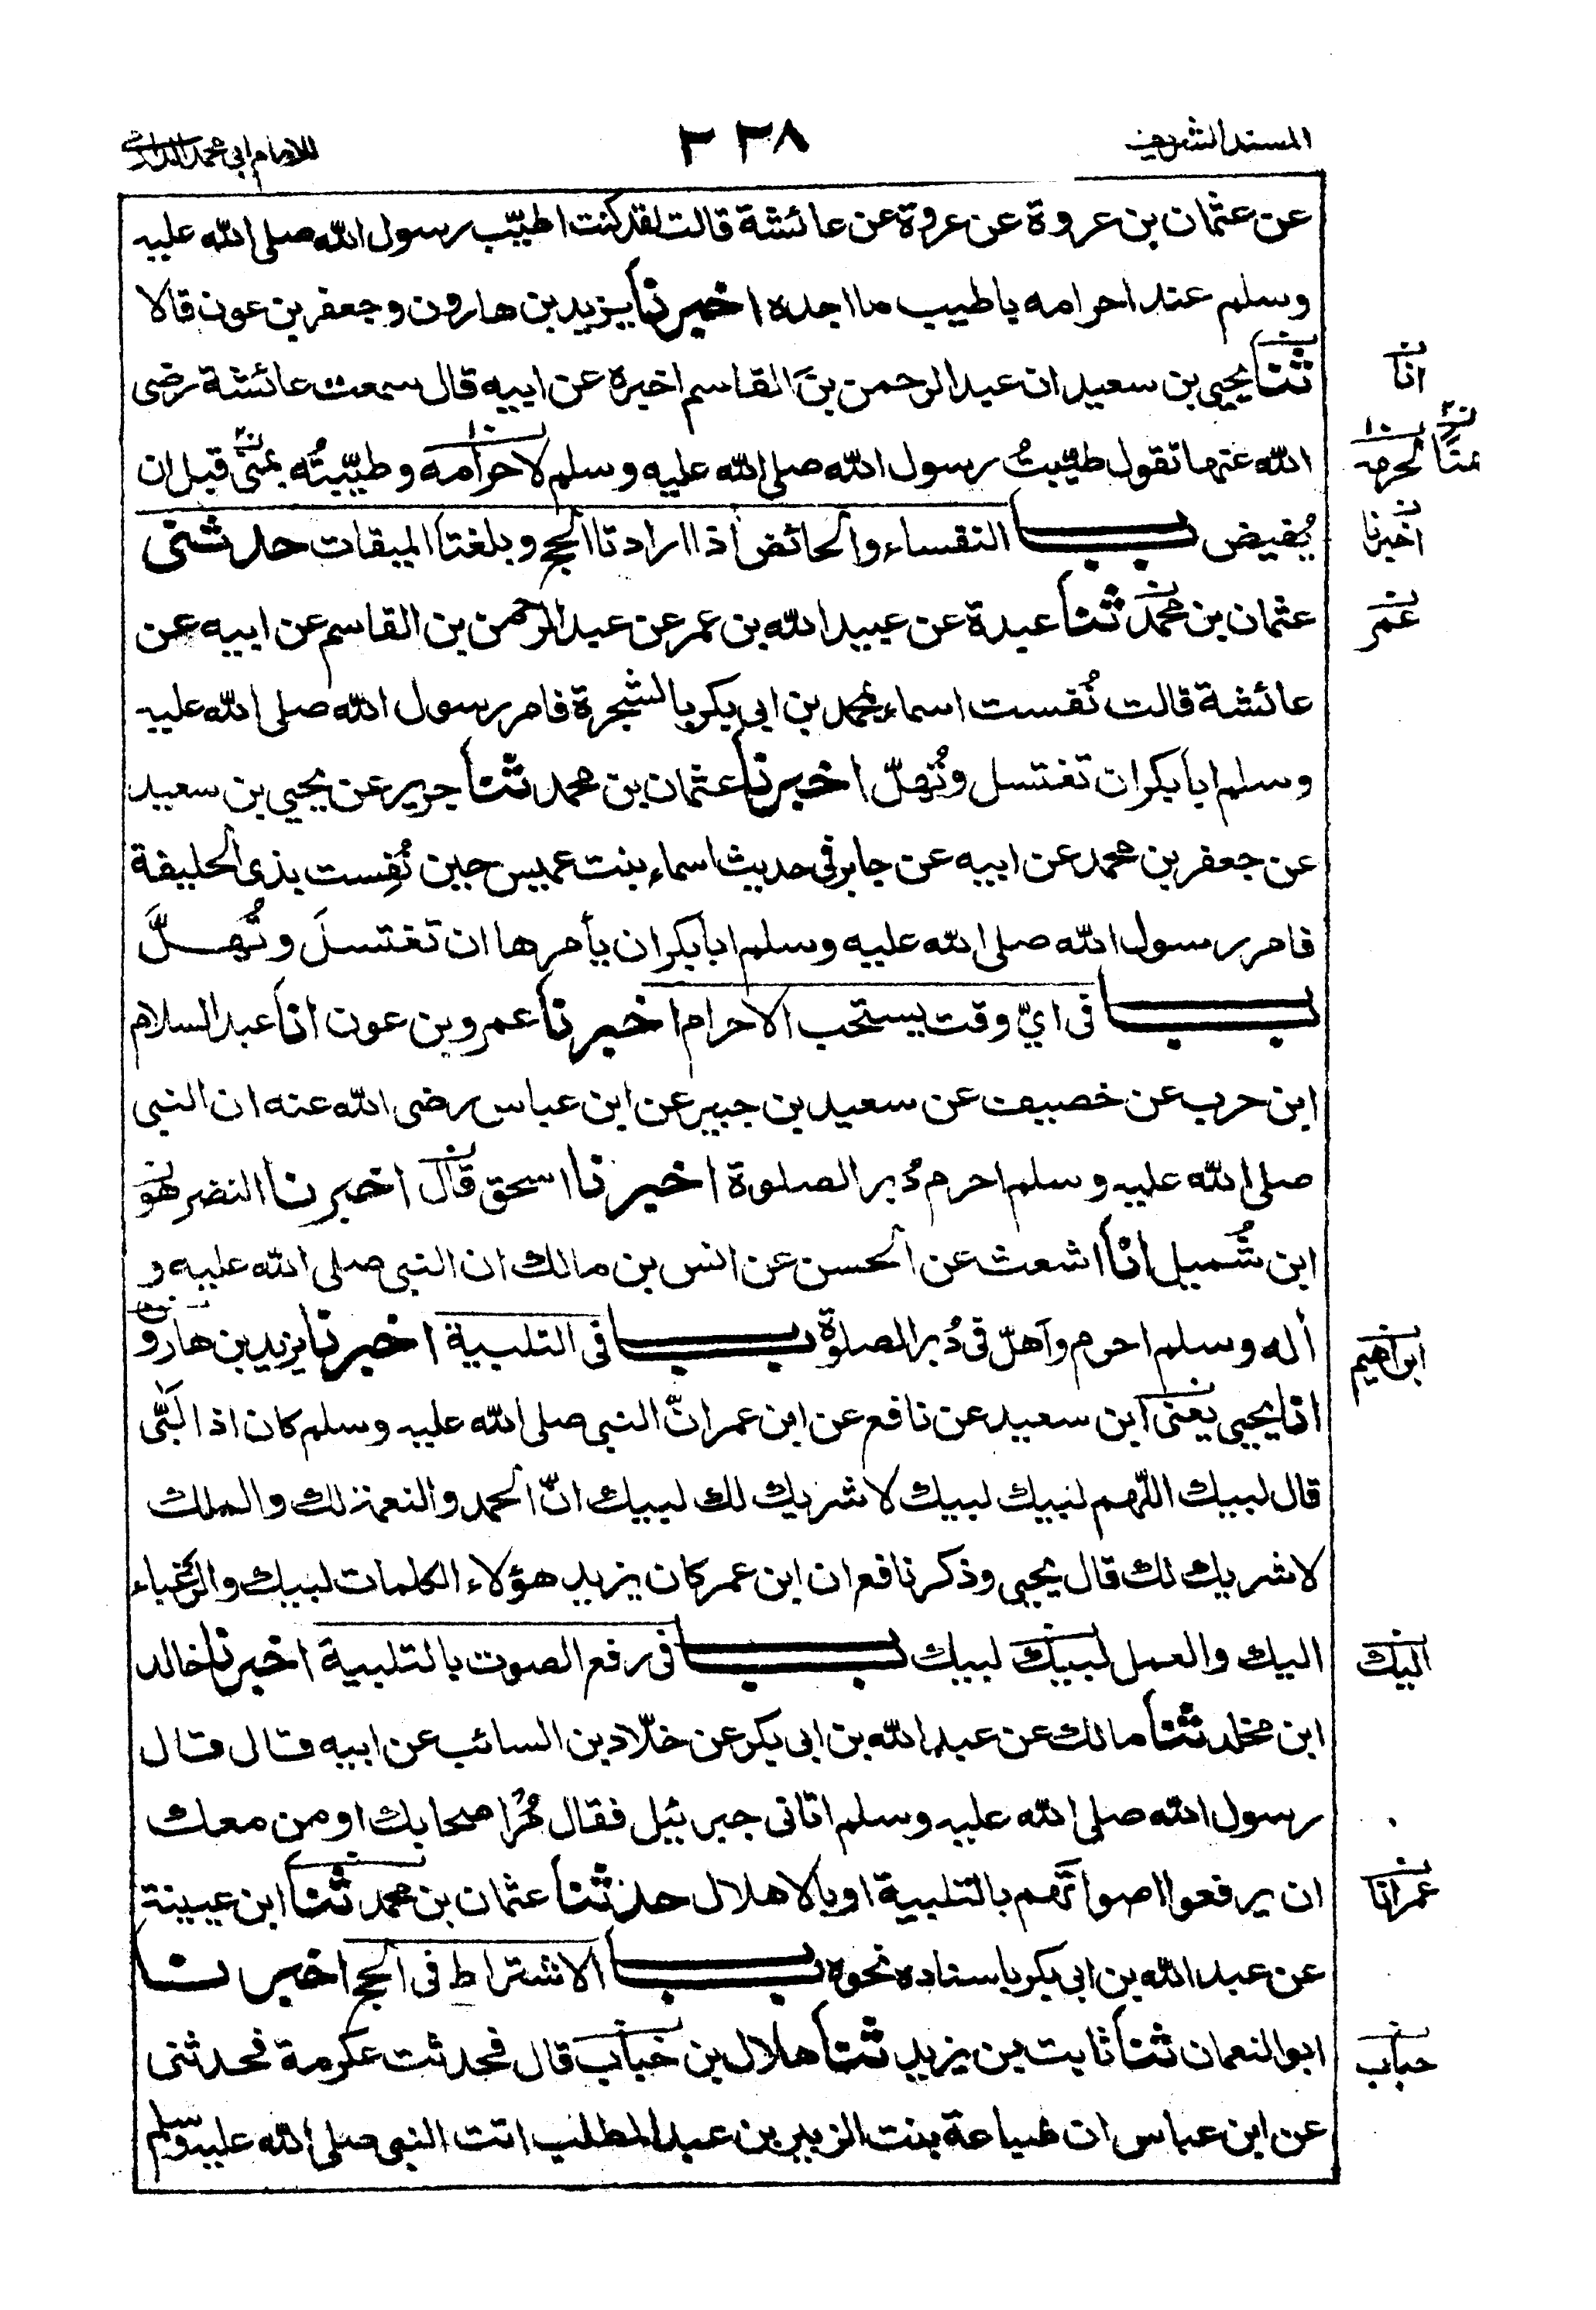 المسند الشريف
٢٣٨
للامام ابي محمد الدارمي
عن عثمان بن عروة عن عروة عن عائشة قالت لقد كنت اطيّب رسول الله صلى الله عليه
وسلم عند احرامه باطيب ما اجده اخبرنا يزيد بن هارون وجعفر بن عون قالا
ثنا يحيى بن سعيد ان عبد الرحمن بن القاسم اخبره عن ابيه قال سمعت عائشة رضى
انا
الله عنها تقول طيّبتُ رسول الله صلى الله عليه وسلم لاحرامه وطيّبتُه بمنًى قبل ان
لحرمه
يُفيض باب النفساء والحائض اذا ارادتا الحج وبلغتا الميقات حدثنى
اخبرنا
عثمان بن محمد ثنا عبدة عن عبيد الله بن عمر عن عبد الرحمن بن القاسم عن ابيه عن
عمر
عائشة قالت نُفست اسماء بمحمد بن ابى بكر بالشجرة فامر رسول الله صلى الله عليه
وسلم ابا بكر ان تغتسل وتُهلّ اخبرنا عثمان بن محمد ثنا جرير عن يحيى بن سعيد
عن جعفر بن محمد عن ابيه عن جابر فى حديث اسماء بنت عميس حين نُفِست بذى الحليفة
فامر رسول الله صلى الله عليه وسلم ابا بكر ان يأمرها ان تغتسلَ وتُهلَّ
باب فى ايّ وقت يستحب الاحرام اخبرنا عمرو بن عون انا عبد السلام
ابن حرب عن خصيف عن سعيد بن جبير عن ابن عباس رضى الله عنه ان النبى
صلى الله عليه وسلم احرم دُبر الصلوة اخبرنا اسحق قال اخبرنا النضر هو
ابن شُميل انا اشعث عن الحسن عن انس بن مالك ان النبى صلى الله عليه و
أله وسلم احرم واَهلّ فى دُبر الصلوة باب فى التلبية اخبرنا يزيد بن هارون
ابراهيم
انا يحيى يعنى ابن سعيد عن نافع عن ابن عمر انّ النبى صلى الله عليه وسلم كان اذا لَبّى
قال لبيك اللّهم لبيك لبيك لا شريك لك لبيك انّ الحمد والنعمة لك والملك
لا شريك لك قال يحيى وذكر نافع ان ابن عمر كان يزيد هؤلاء الكلمات لبيك والرغباء
اليك والعمل لبيك لبيك باب فى رفع الصوت بالتلبية اخبرنا خالد
اليك
ابن مخلد ثنا مالك عن عبد الله بن ابى بكر عن خلّاد بن السائب عن ابيه قال قال
رسول الله صلى الله عليه وسلم اتانى جبرئيل فقال مُرْ اصحابك او من معك
ان يرفعوا اصواتَهم بالتلبية او بالاهلال حدثنا عثمان بن محمد ثنا ابن عيينة
عمر انا
عن عبد الله بن ابى بكر باسناده نحوه باب الاشتراط فى الحج اخبرنا
ابو النعمان ثنا ثابت بن يزيد ثنا هلال بن خباب قال فحدثت عكرمة فحدثنى
حباب
عن ابن عباس ان ضباعة بنت الزبير بن عبد المطلب اتت النبى صلى الله عليه وسلم